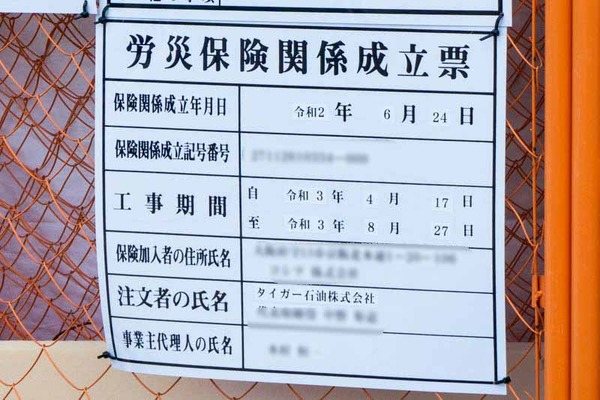 労災保険関係成立票
保険関係成立年月日 令和2年 6月 24日
保険関係成立記号番号
工事期間 自 令和3年 4月 17日
至 令和3年 8月 27日
保険加入者の住所氏名
注文者の氏名 タイガー石油株式会社
事業主代理人の氏名